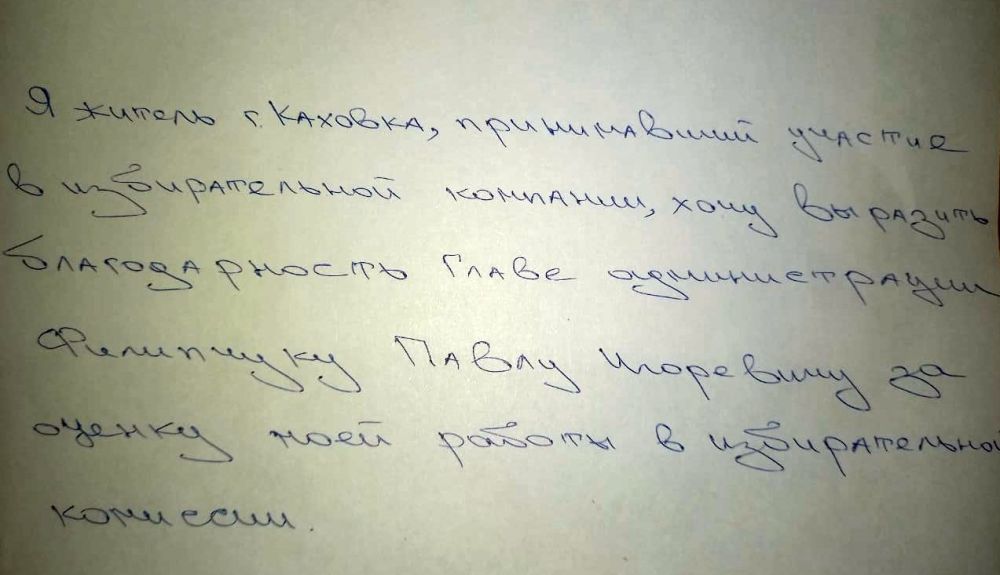 Я житель г. Каховка, принимавший участие
в избирательной компании, хочу выразить
благодарность Главе администрации
Филипчуку Павлу Игоревичу за
оценку моей работы в избирательной
комиссии.